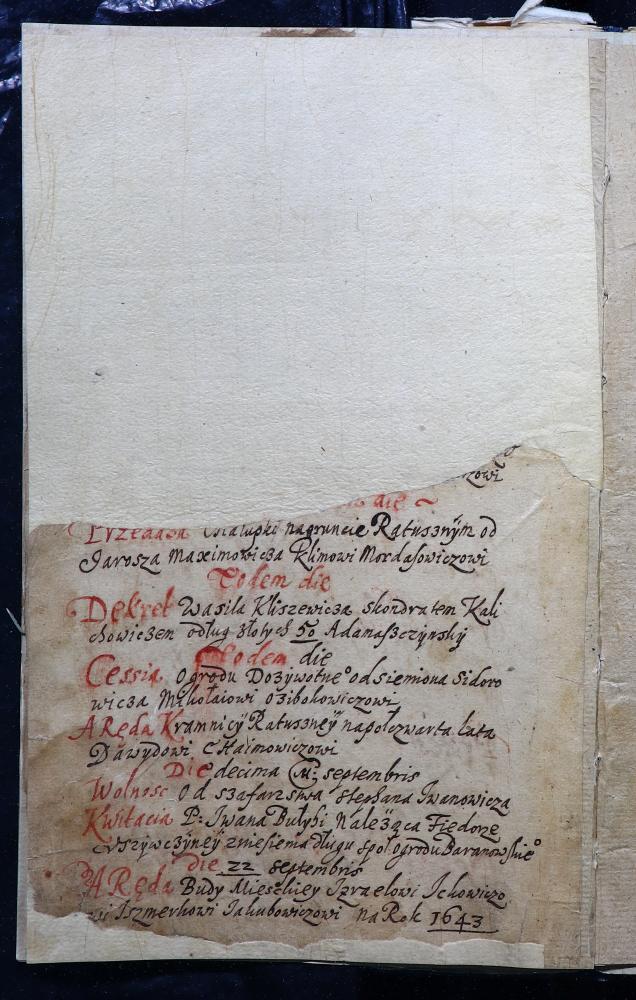 zowi
die
Przedaża Chałupki na gruncie Ratusznÿm od
Jarosza Maximowicza Klimowi Mordasowiczowi
Eodem die
Dekret Wasila Kliszewicza skondratem Kali
chowiczem odług złotych 50 Adanaszczynskÿ
Eodem die
Cessia Ogrodu Dożywotne° od siemiona sidoro
wicza Mikołaiowi ozibokowiczowi
ARęda Kramnicÿ Ratuszneÿ napołczwarta lata
Dawydowi CHaimowiczowi
Die decima septembris
Wolnosc Od szafarstwa stephana Iwanowicza
Kwitacia P: Iwana Bułyhi Należąca Fiedorze
zniesienia długu społ ogrodu Baranowskie°
die 22 septembris
ARęda Budy Mieszkiey Izraelowi Ichowiczo
wi Iszmerkowi Jakubowiczowi na Rok 1643